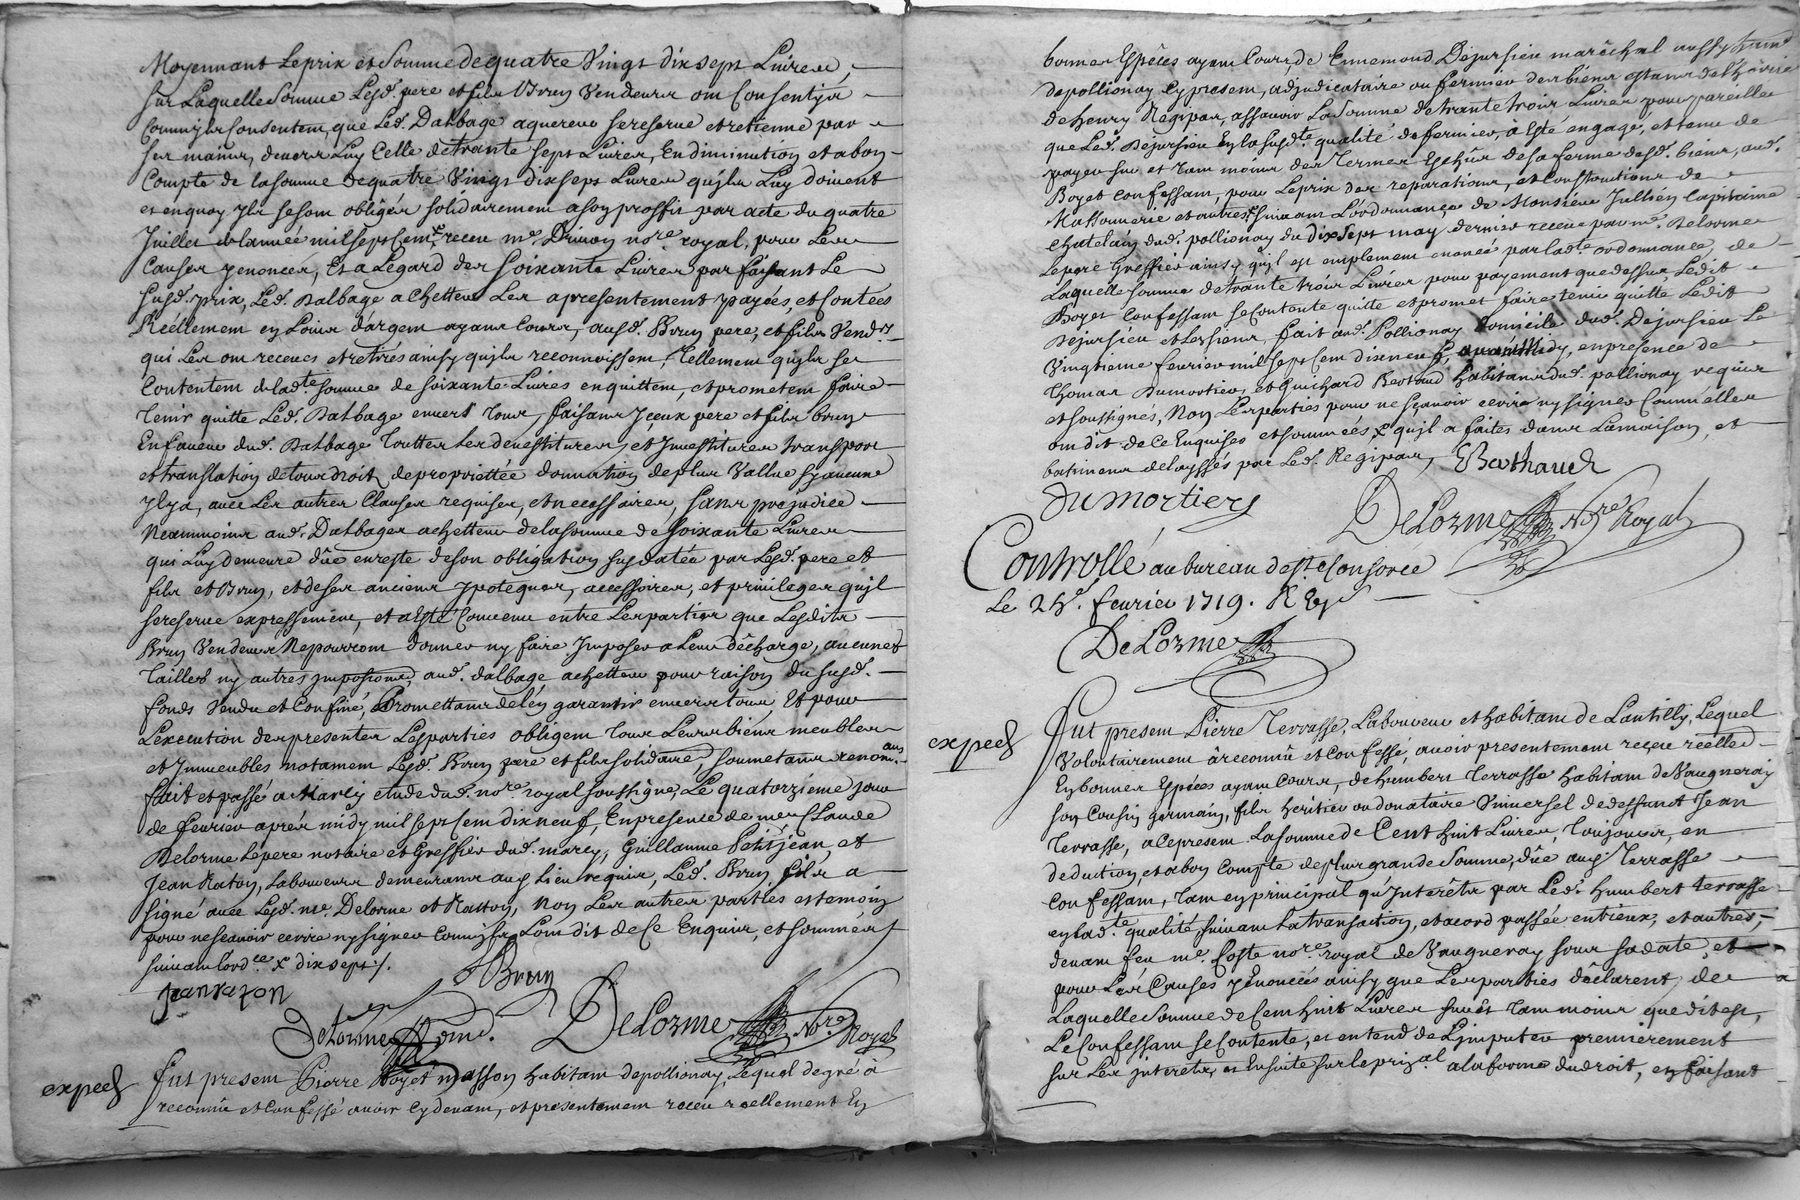 Moyennant le prix et somme de quatre vings dix sept livres,
sur laquelle somme lesd. pere et fils Brun vendeurs ont consenty et
comm'ils consentent, que led. Dalbage aquereur se reserve et retienne par
ses mains, devers luy celle de trante sept livres, en diminution et a bon
compte de la somme de quatre vings dix sept livres qu'ils luy doivent
et en quoy ils se sont obligés solidairement a son proffit par acte du quatre
Juillet de l'année mil sept cent receu me. nore. royal, pour les
causes y enoncées, Et a l'egard des soixante livres par faisant le
susd. prix, led. Dalbage achetteur les a presentement payées, et contées
Réellement en Louis d'argent ayans cours, ausd. Brun pere, et fils vendrs.
qui les ont receues et retirés ainsy qu'ils reconnoissent, tellement qu'ils se
contentent de ladte. somme de soixante livres en quittent, et prometent faire
tenir quitte led. Dalbage envers tous, faisans yceux pere et fils brun
En faveur dud. Dalbage touttes les devestitures, et Investitures transport
et translation de tous droit de proprietée donnation de plus vallue sy aucune
Il y a, avec les autres clauses requises, et necessaires, sans prejudice
Neanmoins aud. Dalbage achetteur de la somme de soixante livres
qui luy demeure düe en reste de son obligation susdatée par lesd. pere et
fils et Brun, et de ses anciens ypoteques, accessoires, et privileges qu'il
se reserve expressement, et a esté convenu entre les parties que lesdits
Brun vendeurs ne pourront donner ny faire Imposer a leur décharge, aucunes
tailles ny autres impositions, aud. dalbage achetteur pour raison du susd.
fonds vendu et confiné, Promettans de l'en garantir envers tous, Et pour
l'execution des presentes lesparties obligent tous leurs biens meubles
et Immeubles notament lesd. Brun pere et fils solidaire, soumetans renonc.ans
fait et passé a Marcy etude dud. nore. royal soussigné, Le quatorzieme jour
de fevrier aprés midy mil sept cent dix neuf, En presence de me Claude
Delorme le pere notaire et Greffier dud. marcy, Guillaume Petitjean, et
Jean Raton, laboureurs demeurans aud. lieu requis, Led. Brun fils a
signé avec lesd. me. Delorme et Ratton, non les autres parties et temoin
pour ne sçavoir ecrire ny signer comm'ils l'ont dit de ce Enquis, et sommés
suivant l'ordce. x dix sept /.
Jean raton
J Brun
Delorme
DeLorme Nore. Royal
exped
Fut present Pierre Boyet masson habitant de pollionay, Lequel de gré à
reconnû et confessé avoir cy devant, et presentement receu reellement En
bonnes Espéces ayans cours, de Ennemond Dejursieu maréchal
de pollionay cy present, adjudicataire ou fermier des biens estans de l'hoirie
de Henry Regipas, assavoir la somme de trante trois livres pour pareille
que led. Dejursieu en la susdte. qualité de fermier, a esté engagé, et tenu de
payer sur et tant moins des termes Eschûs de sa ferme desd. biens, aud.
Boyet confessant, pour le prix des reparations, et constructions de
Massonnerie et autres suivant l'ordonnance de Monsieur Jullien capitaine
chatelain dud. pollionay du dix sept may dernier receue par me. Delorme
le pere Greffier ainsy qu'il est amplement enoncé par ladte. ordonnance, de
Laquelle somme de trante trois livres pour payement que dessus ledit
Boyet confessant se contente quitte et promet faire tenir quitte ledit
Dejursieu et les siens, fait aud. Pollionay domicile dud. Dejursieu le
vingtieme fevrier mil sept cent dix neuf, avant midy, en presence de
Thomas Dumortier, et Guichard Bertaud habitans dud. pollionay requis
et soussignés, Non les parties pour ne sçavoir ecrire ny signer comm'elles
ont dit de ce Enquises et sommées x qu'il a faites dans la maison, et
batimens delayssés par led. Regipas,
Berthaud
Du mortiers
DeLorme Nore. Royal
Controllé au bureau de st. Consorce
Le 25e. fevrier 1719. R
DeLorme
exped
Fut present Pierre Terrasse, Laboureur et habitant de Lantilly, Lequel
Volontairement à reconnû et confessé, avoir presentement reçeu reelled.
En bonnes Espéces ayans cours, de humbert Terrasse habitant de Vaugneray
son cousin germain, fils heritier ou donataire Universel de deffunct Jean
Terrasse, a ce present La somme de Cent huit Livres, Toujours, en
deduction, et a bon compte de plus grande somme, dûe aud. Terrasse
confessant, tant en principal qu'Interêts par led. humbert terrasse
en ladte. qualité suivant la transaction, et acord passée entr'eux, et autres,
devant feu me. Coste nore. royal de Vaugneray sous sa date, et
pour les causes y énoncées ainsy que les parties déclarent, de
Laquelle somme de Cent huit Livres sur et tant moins que dit est,
Le confessant se contente, et entend de l'imputer premierement
sur les interêts, et Ensuite sur le prix.al a la forme du droit, en faisant